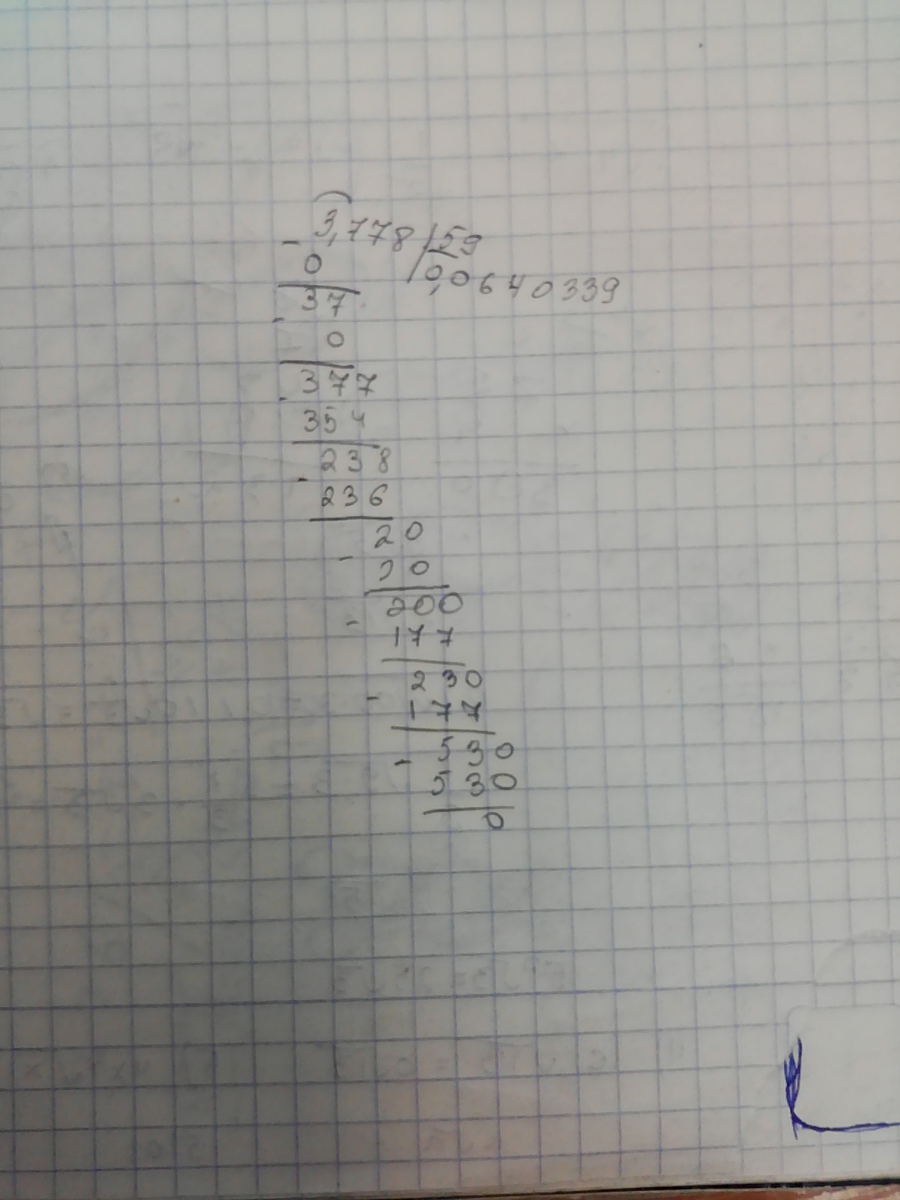 3,778 59
- 0 0,0640339
37
- 0
377
- 354
238
- 236
20
- 20
200
- 177
230
- 177
530
- 530
0